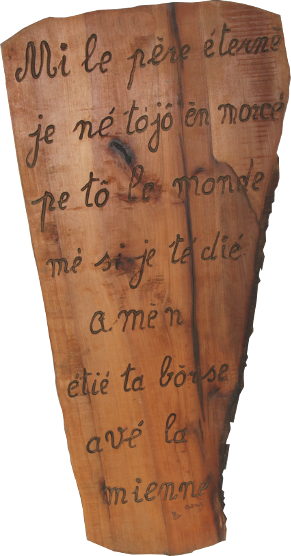 Mi le père éterne
je né tójô ên morcé
pe tô le monde
mé si je té dié
amèn
étié ta bôrse
avé la
mienne